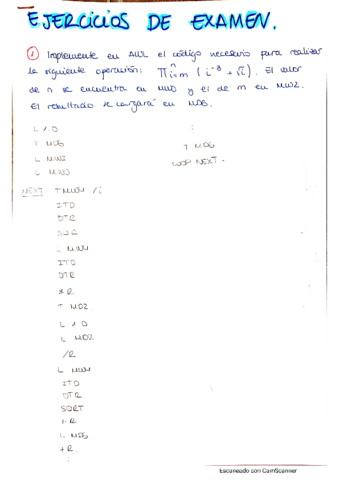 EJERCICIOS DE EXAMEN.
① Implemente en AWL el código necesario para realizar
la siguiente operación: Π i=m ^n ( i^-3 + √i ). El valor
de n se encuentra en MW0 y el de m en MW2.
El resultado se cargará en MD6.
L 1.0
T MD6
T MD6
L MW2
LOOP NEXT.
L MW0
NEXT T MW4 / i
ITD
DTR
SQR
L MW4
ITD
DTR
*R
T MD2
L 1.0
L MD2
/R
L MW4
ITD
DTR
SQRT
+R
L MD6
*R
Escaneado con CamScanner